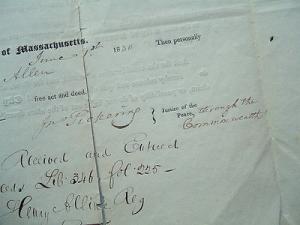 of Massachusetts.
June 1830 Then personally
Allen
free act and deed.
Jno Pickering } Justice of the Peace, through the
Commonwealth
Received and Entered
Lib: 346, fol: 225 –
Henry Alline Reg